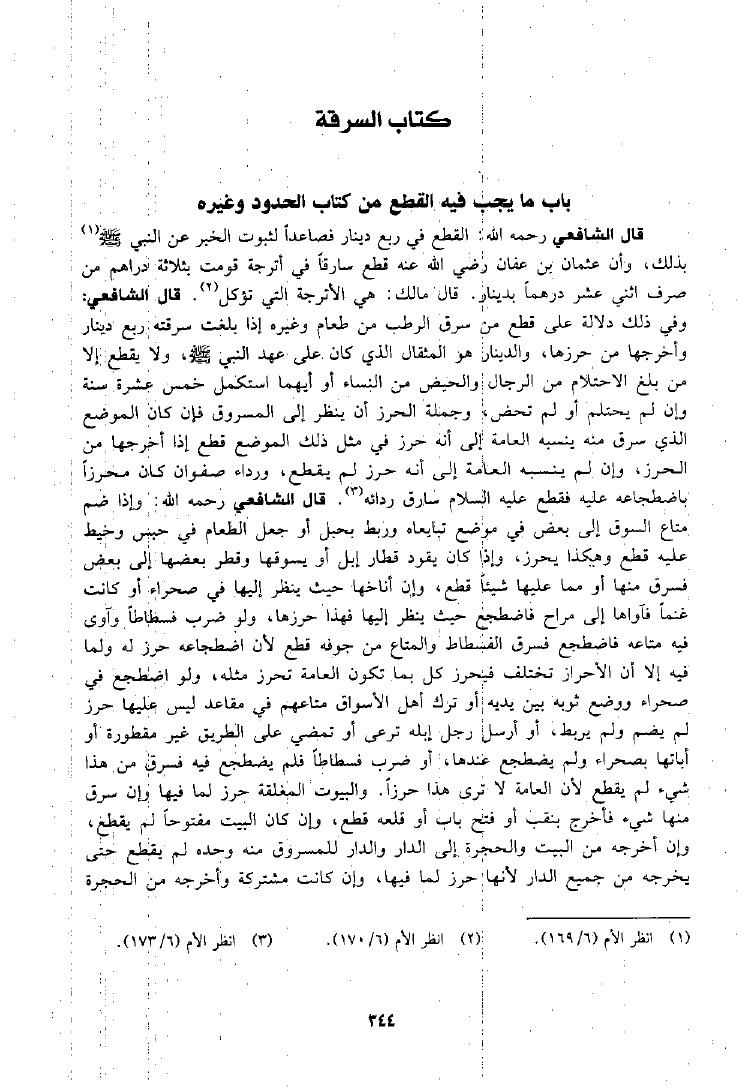 كتاب السرقة
باب ما يجب فيه القطع من كتاب الحدود وغيره
قال الشافعي رحمه الله: القطع في ربع دينار فصاعداً لثبوت الخبر عن النبي ﷺ(١)
بذلك، وأن عثمان بن عفان رضي الله عنه قطع سارقاً في أترجة قومت بثلاثة دراهم من
صرف اثني عشر درهماً بدينار. قال مالك: هي الأترجة التي تؤكل(٢). قال الشافعي:
وفي ذلك دلالة على قطع من سرق الرطب من طعام وغيره إذا بلغت سرقته ربع دينار
وأخرجها من حرزها، والدينار هو المثقال الذي كان على عهد النبي ﷺ، ولا يقطع إلا
من بلغ الاحتلام من الرجال والحيض من النساء أو أيهما استكمل خمس عشرة سنة
وإن لم يحتلم أو لم تحض، وجملة الحرز أن ينظر إلى المسروق فإن كان الموضع
الذي سرق منه ينسبه العامة إلى أنه حرز في مثل ذلك الموضع قطع إذا أخرجها من
الحرز، وإن لم ينسبه العامة إلى أنه حرز لم يقطع، ورداء صفوان كان محرزاً
باضطجاعه عليه فقطع عليه السلام سارق ردائه(٣). قال الشافعي رحمه الله: وإذا ضم
متاع السوق إلى بعض في موضع تبايعاه وربط بحبل أو جعل الطعام في حبس وخيط
عليه قطع وهكذا يحرز، وإذا كان يقود قطار إبل أو يسوقها وقطر بعضها إلى بعض
فسرق منها أو مما عليها شيئاً قطع، وإن أناخها حيث ينظر إليها في صحراء أو كانت
غنماً فآواها إلى مراح فاضطجع حيث ينظر إليها فهذا حرزها، ولو ضرب فسطاطاً وآوى
فيه متاعه فاضطجع فسرق الفسطاط والمتاع من جوفه قطع لأن اضطجاعه حرز له ولما
فيه إلا أن الأحراز تختلف فيحرز كل بما تكون العامة تحرز مثله، ولو اضطجع في
صحراء ووضع ثوبه بين يديه أو ترك أهل الأسواق متاعهم في مقاعد ليس عليها حرز
لم يضم ولم يربط، أو أرسل رجل إبله ترعى أو تمضي على الطريق غير مقطورة أو
أباتها بصحراء ولم يضطجع عندها، أو ضرب فسطاطاً فلم يضطجع فيه فسرق من هذا
شيء لم يقطع لأن العامة لا ترى هذا حرزاً. والبيوت المغلقة حرز لما فيها وإن سرق
منها شيء فأخرج بنقب أو فتح باب أو قلعه قطع، وإن كان البيت مفتوحاً لم يقطع،
وإن أخرجه من البيت والحجرة إلى الدار والدار للمسروق منه وحده لم يقطع حتى
يخرجه من جميع الدار لأنها حرز لما فيها، وإن كانت مشتركة وأخرجه من الحجرة
(١) انظر الأم (١٦٩/٦). (٢) انظر الأم (١٧٠/٦). (٣) انظر الأم (١٧٣/٦).
٣٤٤